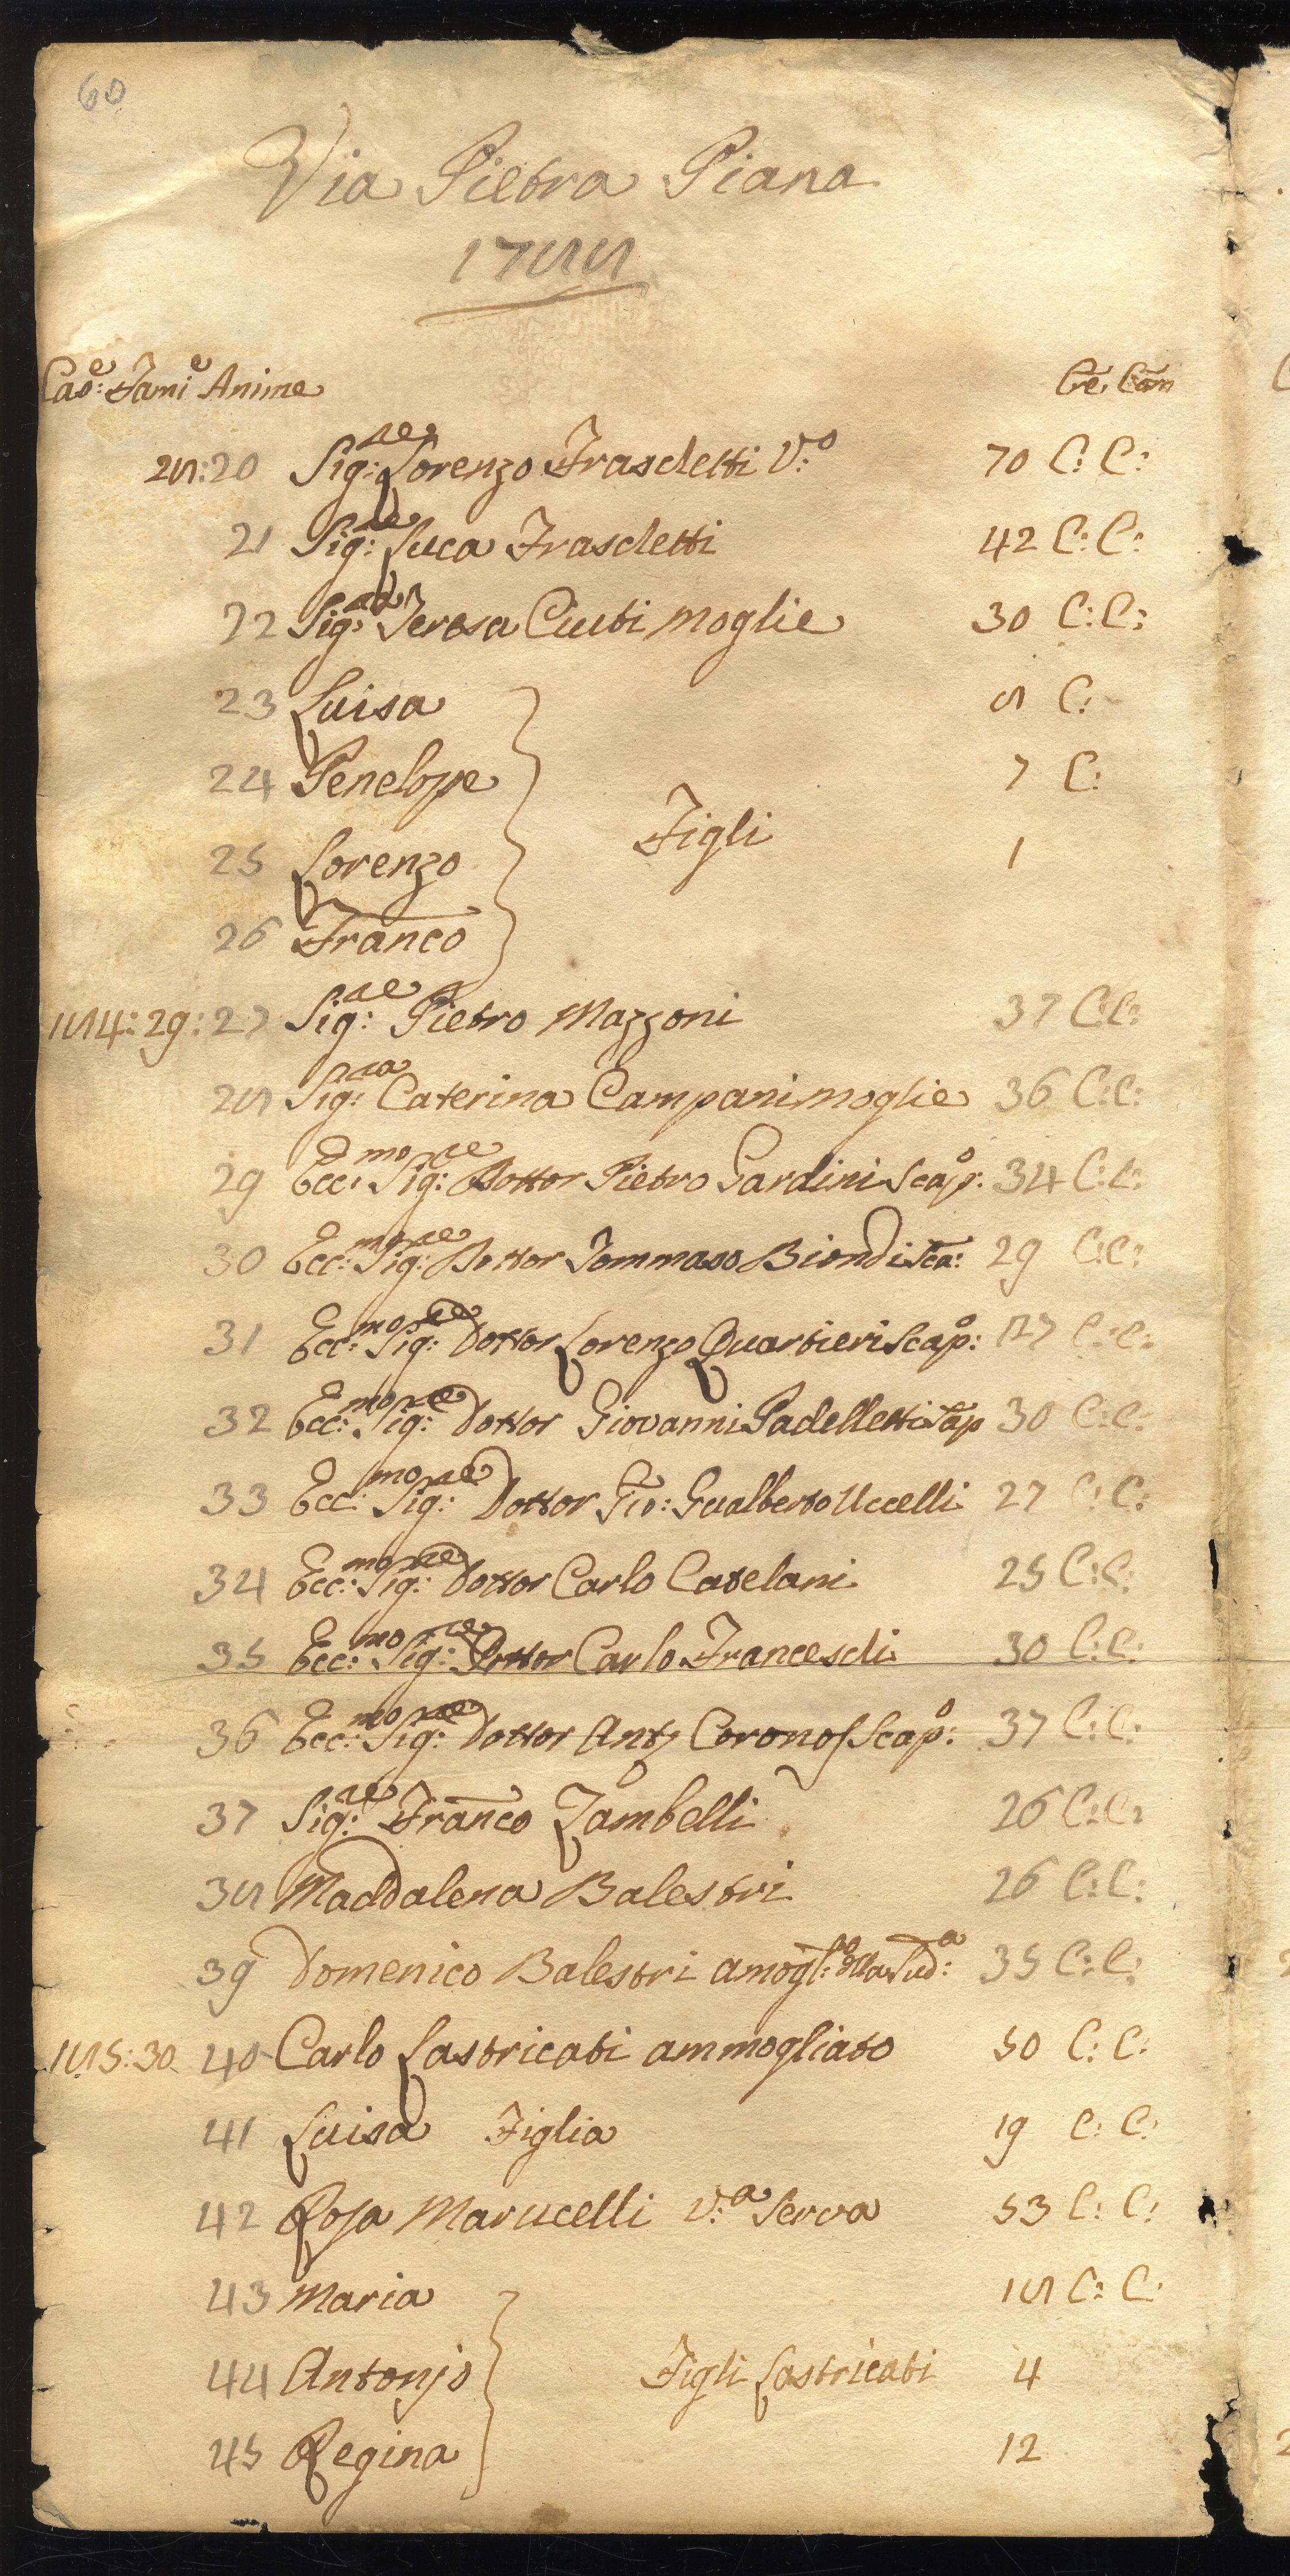 60
Via Pietra Piana
1788
Cas:e Fami:e Anime Cre: Com
28: 20 Sig:re Lorenzo Fraschetti V:o 70 C: C:
21 Sig:re Luca Fraschetti 42 C: C:
22 Sig:ra Teresa Ciuti moglie 30 C: C:
23 Luisa 8 C:
24 Penelope 7 C:
Figli
25 Lorenzo 1
26 Franco
184: 29: 27 Sig:re Pietro Mazzoni 37 C: C:
28 Sig:ra Caterina Campani moglie 36 C: C:
29 Ecc:mo Sig:re Dottor Pietro Gardini Scap:o 34 C: C:
30 Ecc:mo Sig:re Dottor Tommaso Biondi Sca: 29 C: C:
31 Ecc:mo Sig:re Dottor Lorenzo Quartieri Scap:o 27 C: C:
32 Ecc:mo Sig:re Dottor Giovanni Padelletti Scap 30 C: C:
33 Ecc:mo Sig:re Dottor Gio: Gualberto Uccelli 27 C: C:
34 Ecc:mo Sig:re Dottor Carlo Catelani 25 C: C:
35 Ecc:mo Sig:re Dottor Carlo Franceschi 30 C: C:
36 Ecc:mo Sig:re Dottor Anto Scap:o 37 C: C:
37 Sig:re Franco Zambelli 26 C: C:
38 Maddalena Balestri 26 C: C:
39 Domenico Balestri amogl:to della Sud:a 35 C: C:
185: 30 40 Carlo Lastricati ammogliato 50 C: C:
41 Luisa Figlia 19 C: C:
42 Rosa Marucelli V:a Serva 53 C: C:
43 Maria 18 C: C:
44 Antonjo Figli Lastricati 4
45 Regina 12